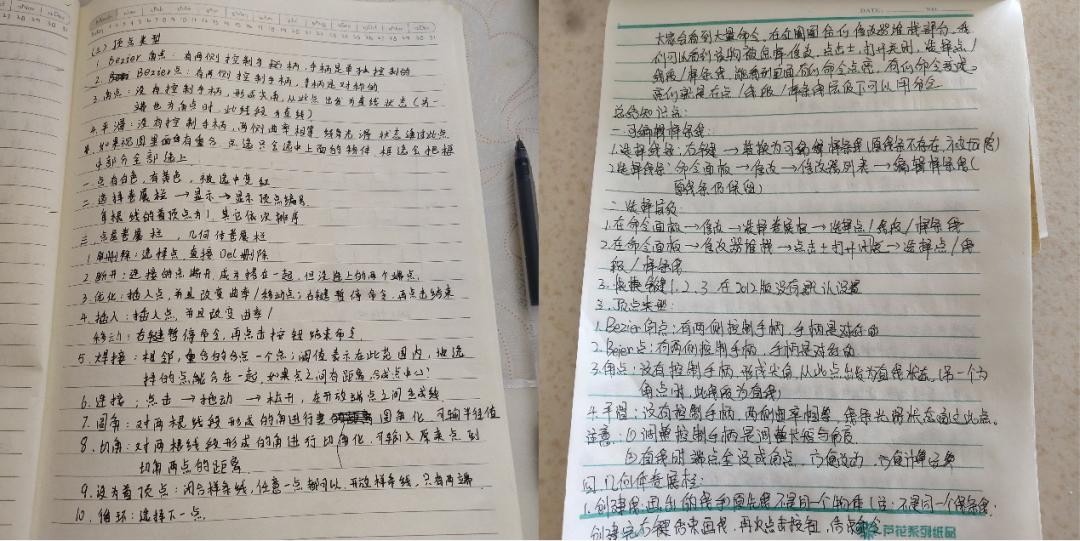 (二) 顶点类型
1. Bezier角点：有两侧控制手柄，手柄是单独控制的
2. Bezier点：有两侧控制手柄，手柄是对称的
3. 角点：没有控制手柄，形成尖角，从此点出发为直线状态（另一
端也为角点时，此线段为直线）
4. 平滑：没有控制手柄，两侧曲率相等，线条光滑状态通过此点
如果视图里面有重合，点选只会选中上面的物件，框选会把框
中部分全部选上
一. 点有白色，有黄色，被选中变红
二. 选择卷展栏→显示→显示顶点编号
每根线的首顶点为1，其它依次排序
三. 点层卷展栏，几何体卷展栏
1. 删除：选择点，直接Del删除
2. 断开：连接的点断开，成为接在一起，但没焊上的两个端点
3. 优化：插入点，并且改变曲率/移动点；右键暂停命令，再点击结束
4. 插入：插入点，并且改变曲率/
移动；右键暂停命令，再点击按钮结束命令
5. 焊接：相邻，重合的合点一个点；阈值表示在此范围内，被选
择的点能合在一起，如果点之间有距离，合成点中心！
6. 连接：点击→拖动→松开，在开放端点之间连成线
7. 圆角：对两根线段形成的角进行圆角化，可输半径值
8. 切角：对两根线段形成的角进行切角化，可输入原来点到
切角两点的距离
9. 设为首顶点：闭合样条线，任意一点都可以，开放样条线，只有两端
10. 循环：选择下一点
DATE: NO:
大家会看到大量命令
总结知识点：
一. 可编辑样条线：
1. 选择线条：右键→转换为可编辑样条线（原线条不存在，不可恢复）
2. 选择线条：命令面板→修改→修改器列表→编辑样条线（
原线条仍保留）
二. 选择层级
1. 在命令面板→修改→选择卷展栏→选择点/线段/样条线
2. 在命令面板→修改器堆栈→点击土打开闭→选择点/线
段/样条线
3. 快捷键1.2.3 在2012版没有默认设置
三. 顶点类型：
1. Bezier角点：有两侧控制手柄，手柄是对称的
2. Beier点：有两侧控制手柄，手柄是对称的
3. 角点：没有控制手柄，形成尖角，从此点出发为直线状态，（另一个为
角点时，此线段为直线）
4. 平滑：没有控制手柄，两侧曲率相等，线条光滑状态通过此点。
注意：①调整控制手柄是调整长短与角度
②直线时端点全设成角点，方便改动
四. 几何体卷展栏：
1. 创建线：画出的线于原先线不是同一个物体（注：不是同一个样条线；
创建完右键结束画线，再次点击按钮，结束命令
芦花系列纸品